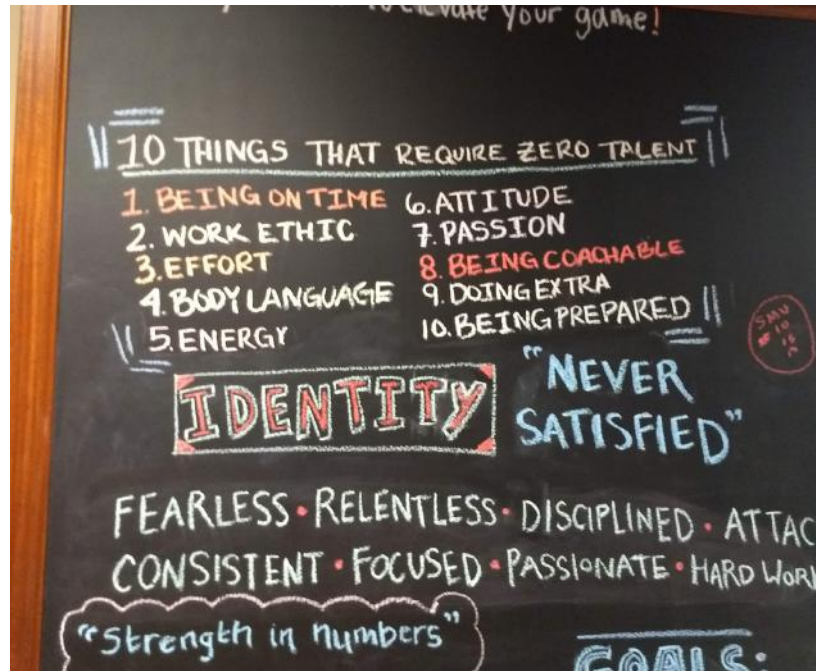 your game!
10 THINGS THAT REQUIRE ZERO TALENT
1. BEING ON TIME
2. WORK ETHIC
3. EFFORT
4. BODY LANGUAGE
5. ENERGY
6. ATTITUDE
7. PASSION
8. BEING COACHABLE
9. DOING EXTRA
10. BEING PREPARED
IDENTITY
"NEVER
SATISFIED"
FEARLESS • RELENTLESS • DISCIPLINED • ATTAC
CONSISTENT • FOCUSED • PASSIONATE • HARD WOR
"Strength in numbers"
GOALS: